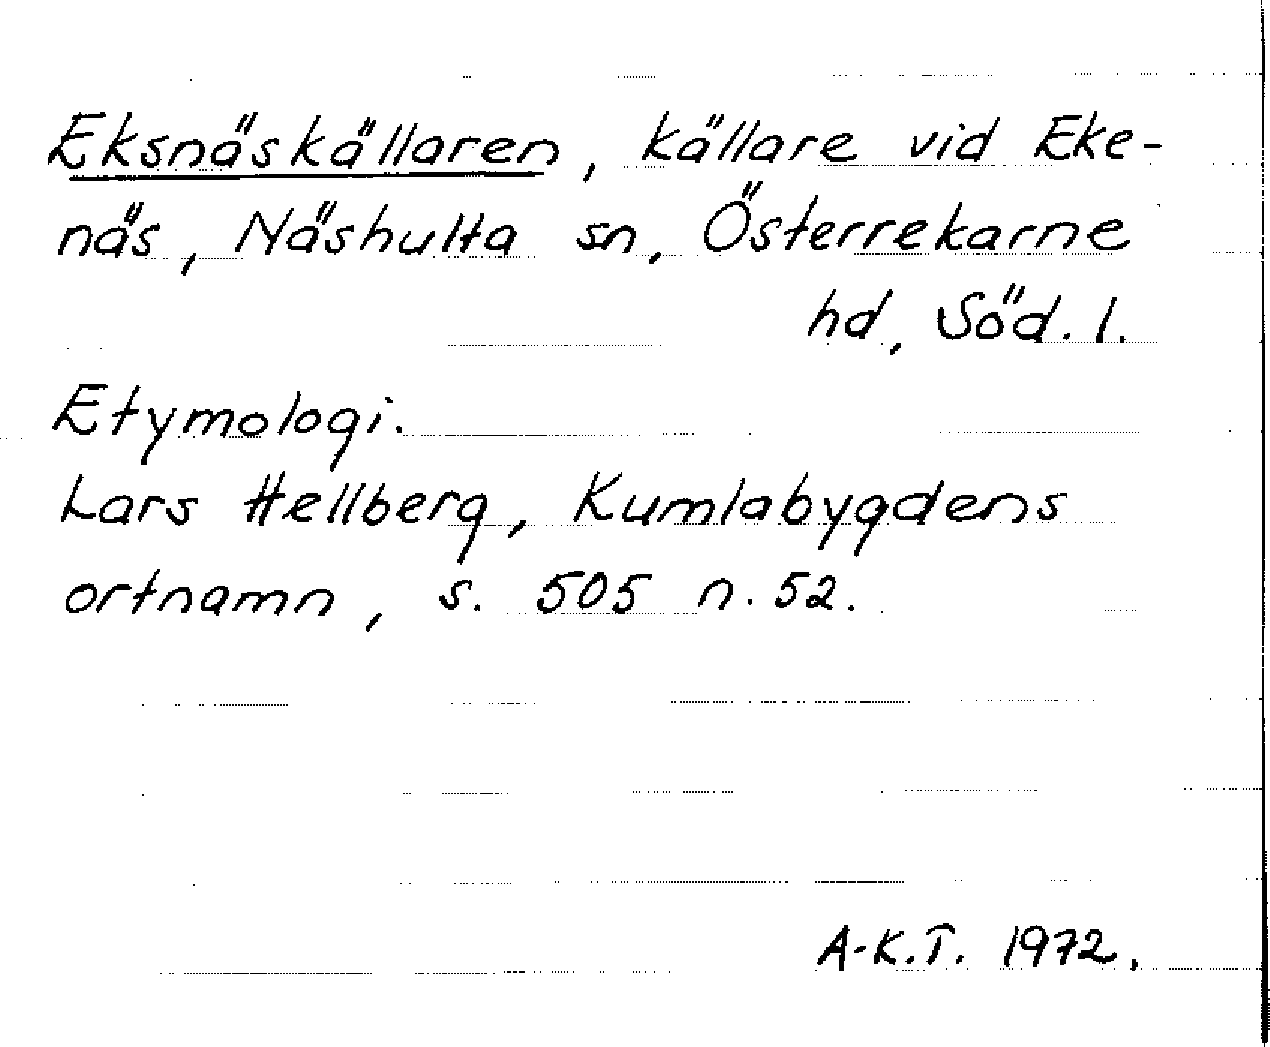 Eksnäskällaren, källare vid Eke-
näs, Näshulta sn, Österrekarne
hd, Söd. l.
Etymologi.
Lars Hellberg, Kumlabygdens
ortnamn, s. 505 n. 52.
A-K.T. 1972.